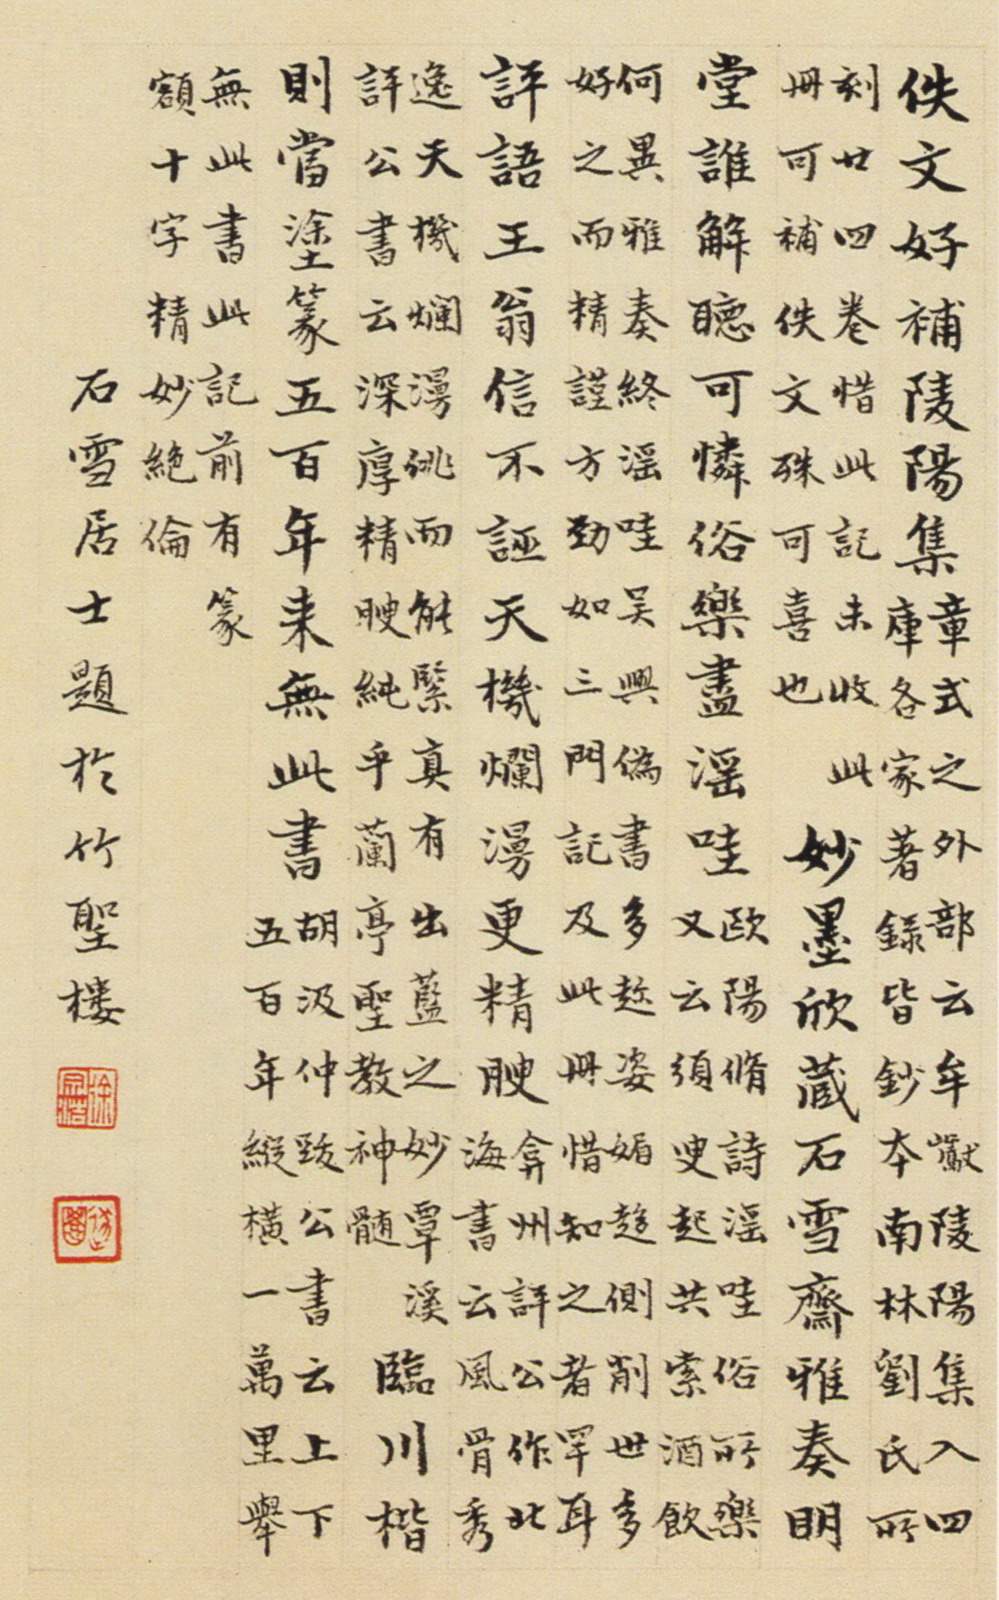 佚文好補陵陽集
章式之外部云牟巘陵陽集入四
庫各家著錄皆鈔本南林劉氏所
刻廿四卷惜此記未收此
冊可補佚文殊可喜也
妙墨欣藏石雪齋雅奏明
堂誰解聽可憐俗樂盡淫哇
歐陽脩詩淫哇俗所樂
又云須臾起共索酒飲
何異雅奏終淫哇吴興偽書多趂姿媚趨側削世多
好之而精謹方勁如三門記及此冊惜知之者罕耳
評語王翁信不誣天機爛漫更精腴
弇州評公作北
海書云風骨秀
逸天機爛漫佻而能緊真有出藍之妙覃溪
評公書云深厚精腴純乎蘭亭聖教神髓
臨川楷
則當塗篆五百年来無此書
胡汲仲跋公書云上下
五百年縱橫一萬里舉
無此書此記前有篆
額十字精妙絕倫
石雪居士題於竹聖樓
徐宗浩